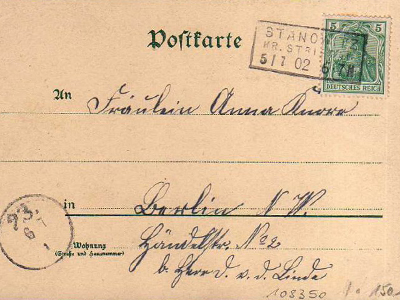 Postkarte
STANO
KR. STRI
5/7 02
5 5
DEUTSCHES REICH
An Fräulein Anna Knorr
in Berlin N.W.
Wohnung
(Straße und Hausnummer)
Händelstr. No 2
b. Herrn D. v. d. Linde
108350
150